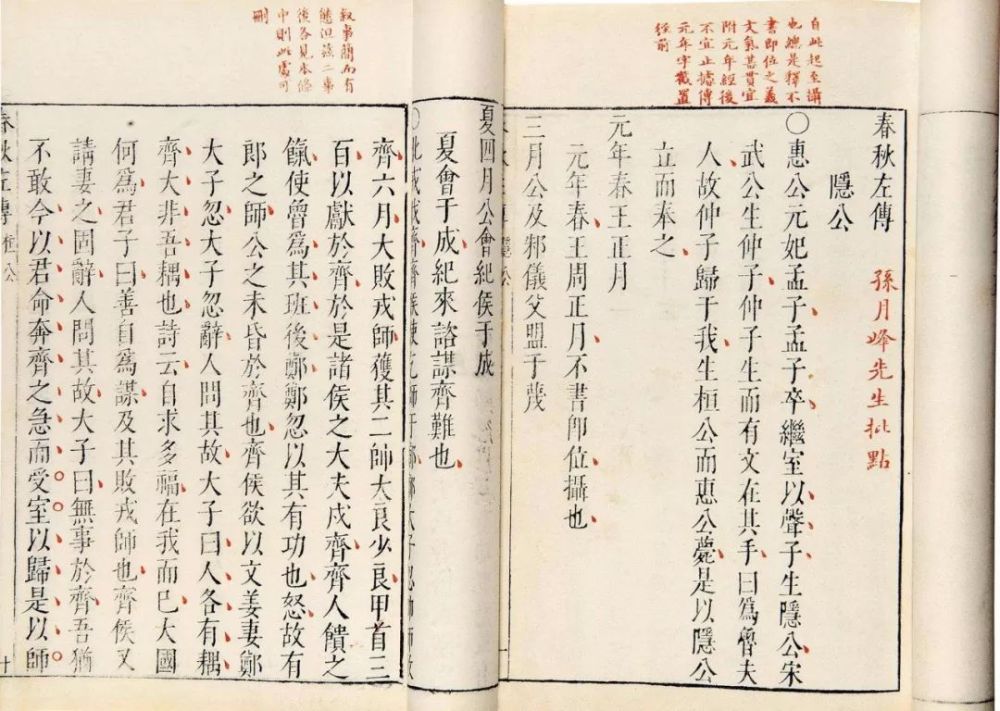 自此起至攝
也總是釋不
書即位之義
文氣甚貫宜
附元年經後
不宜止據傳
元年字截置
經前
春秋左傳 孫月峰先生批點
隱公
○惠公元妃孟子孟子卒繼室以聲子生隱公宋
武公生仲子仲子生而有文在其手曰爲魯夫
人故仲子歸于我生桓公而惠公薨是以隱公
立而奉之
元年春王正月
元年春王周正月不書卽位攝也
三月公及邾儀父盟于蔑
敘事簡而有
態但茲二事
後各見本條
中則此處可
刪
夏四月公會紀侯于成
夏會于成紀來諮謀齊難也
齊六月大敗戎師獲其二帥大良少良甲首三
百以獻於齊於是諸侯之大夫戍齊齊人饋之
餼使魯爲其班後鄭鄭忽以其有功也怒故有
郎之師公之未昏於齊也齊侯欲以文姜妻鄭
大子忽大子忽辭人問其故大子曰人各有耦
齊大非吾耦也詩云自求多福在我而已大國
何爲君子曰善自爲謀及其敗戎師也齊侯又
請妻之固辭人問其故大子曰無事於齊吾猶
不敢今以君命奔齊之急而受室以歸是以師
春秋左傳 桓公 十